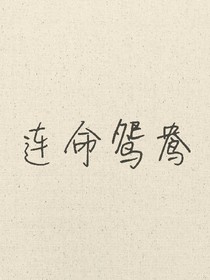 连命鸳鸯